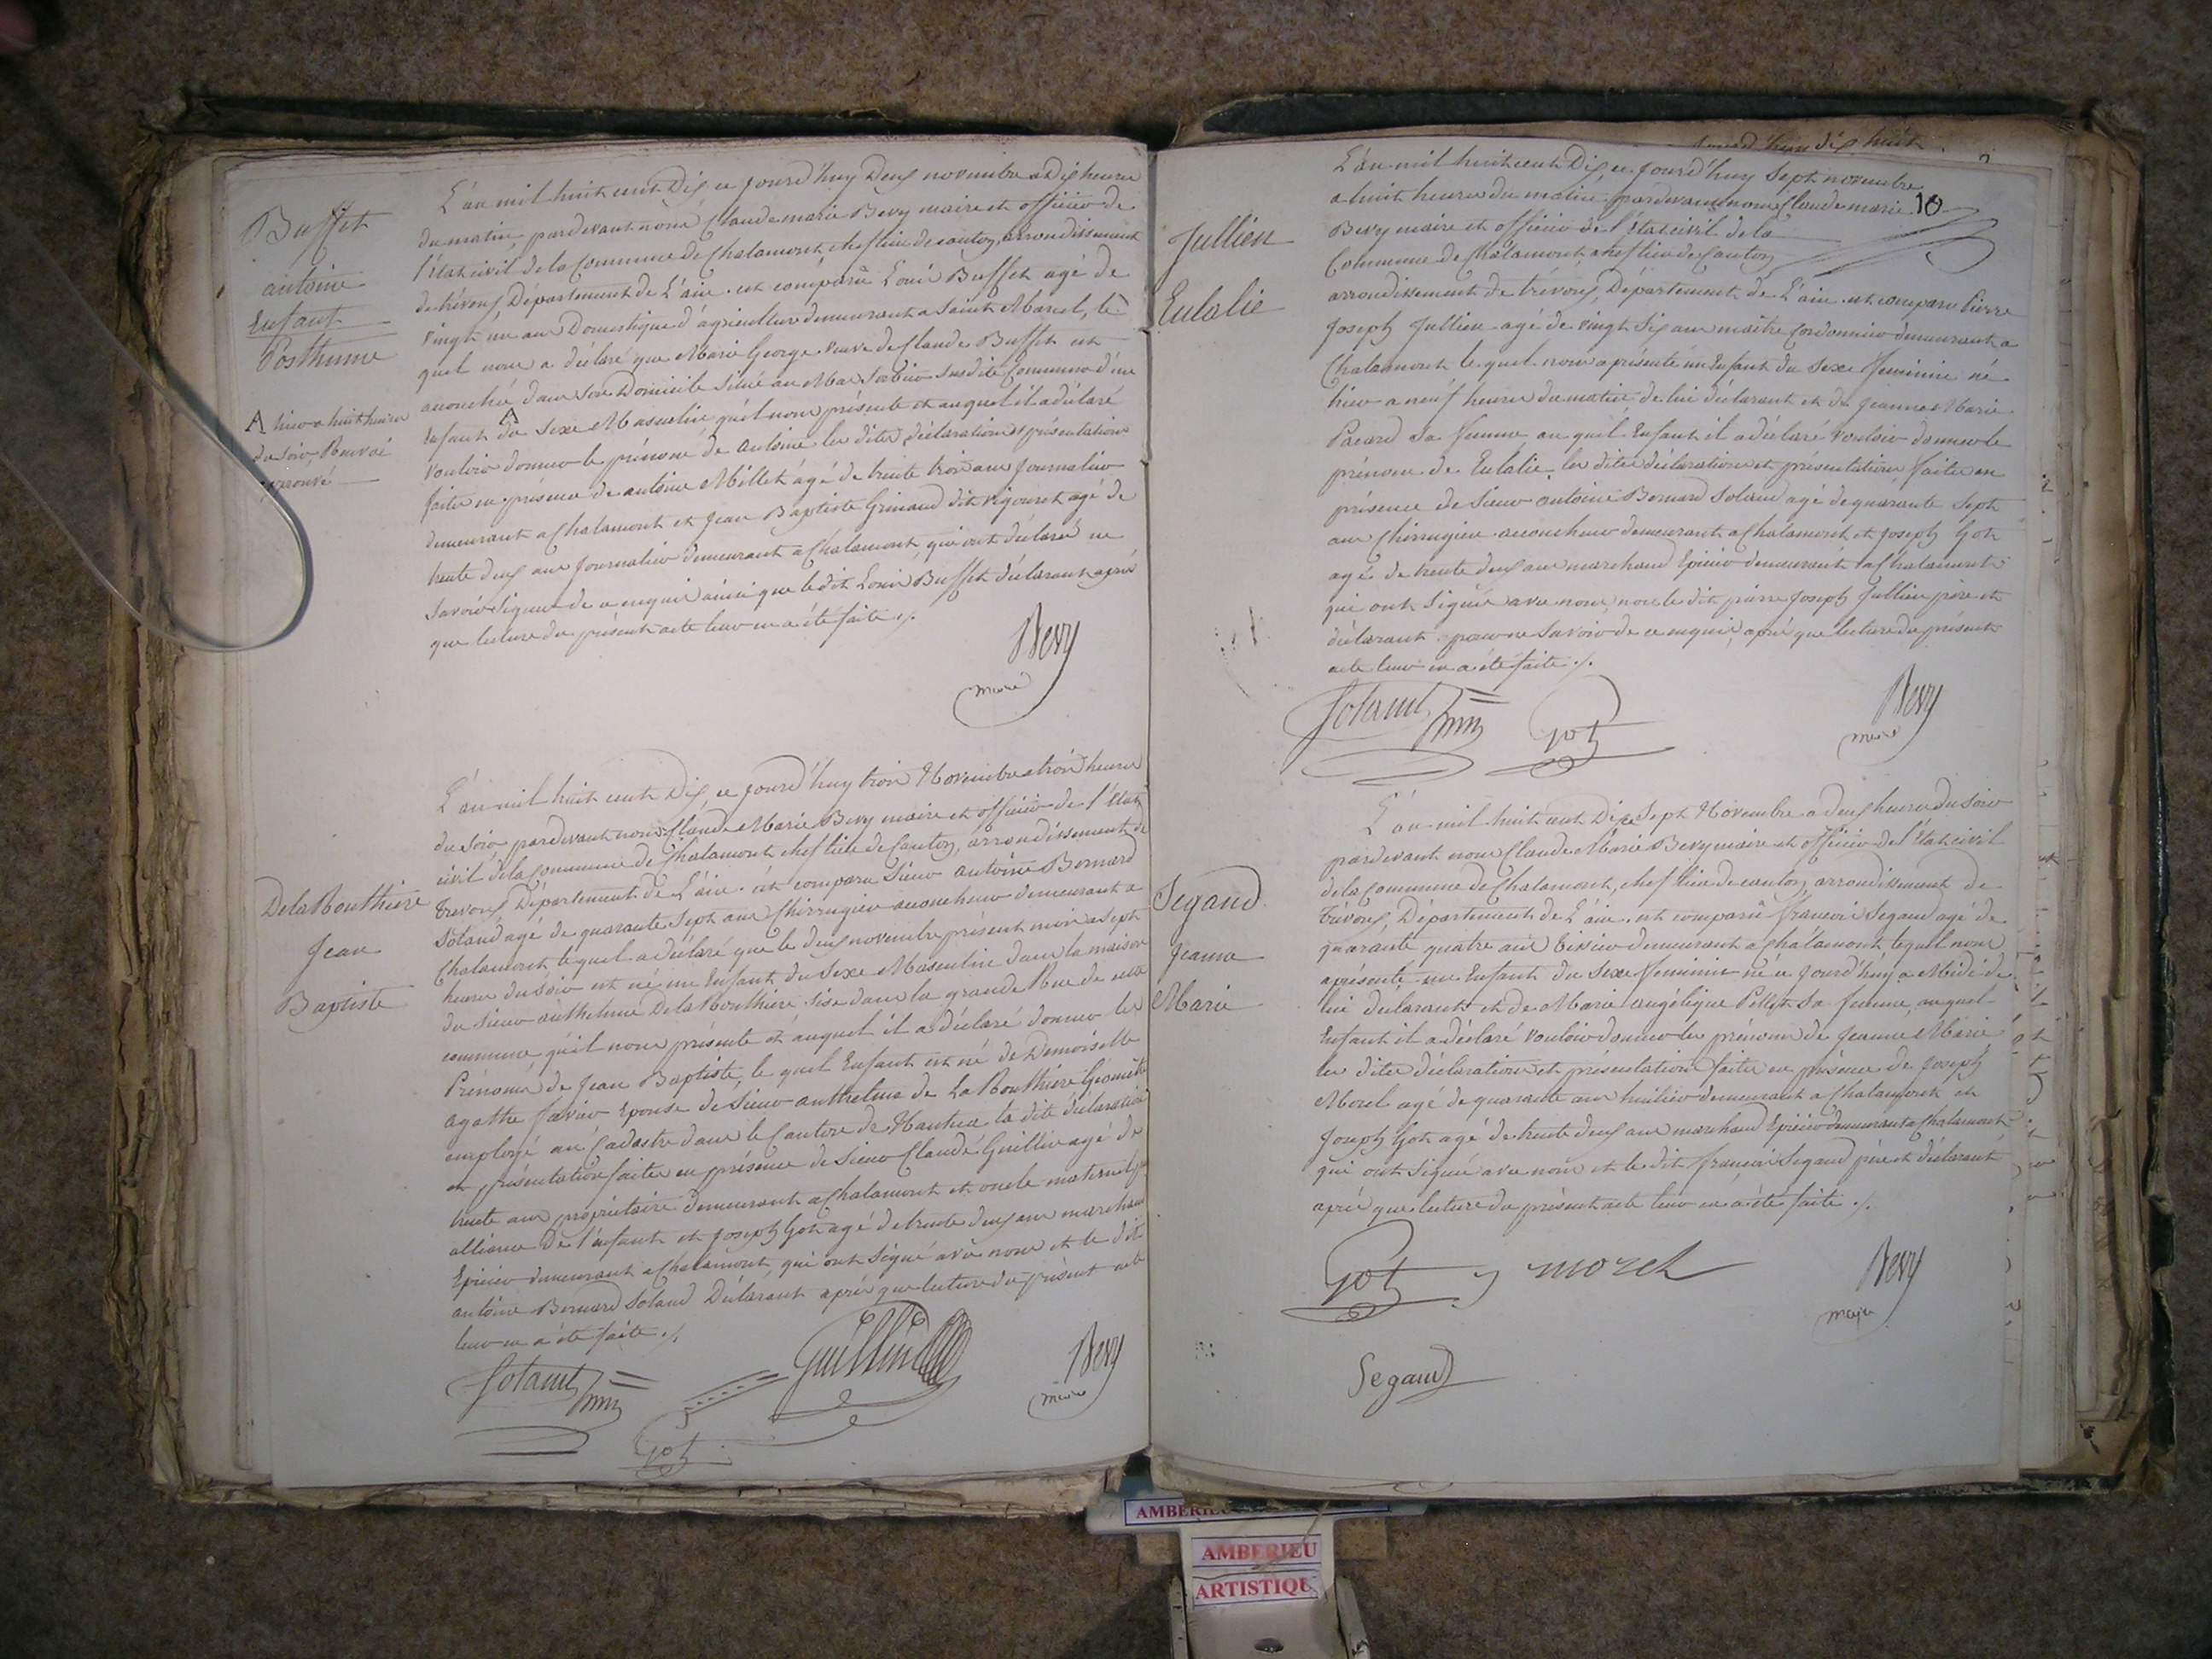 Buffet
antoine
Enfant
Posthume
A hier a huit heures
du soir, Renvoi
approuvé
L'an mil huit cent Dix, ce jourd'huy Deux novembre a Dix heures
du matin, pardevant nous Claude marie Bevy maire et officier de
l'état civil de la Commune de Chalamont, chef lieu de canton, arrondissement
de trévoux, Département de L'ain. est comparu Louis Buffet agé de
vingt un ans Domestique d'agriculture demeurant a Saint Marcel, le
quel nous a déclaré que Marie George veuve de Claude Buffet est
accouchée dans son Domicile situé au Mas susdite Commune d'un
A
Enfant du Sexe Masculin, qu'il nous présente et auquel il a déclaré
vouloir donner le prénom de antoine les dites déclaration et présentation
faites en présence de antoine Millet âgé de trente trois ans journalier
demeurant a Chalamont et Jean Baptiste Grinaud dit Vigouret agé de
trente deux ans journalier demeurant a Chalamont, qui ont déclaré ne
savoir signer de ce enquis ainsi que le dit Louis Buffet déclarant après
que lecture du présent acte leur en a été faite ./.
Bevy
maire
DelaBouthière
Jean
Baptiste
L'an mil huit cent Dix, ce jourd'huy trois Novembre a trois heures
du soir, pardevant nous Claude Marie Bevy maire et officier de l'état
civil de la commune de Chalamont chef lieu de Canton, arrondissement de
trevoux, Département de L'ain. est comparu Sieur antoine Bernard
Solaud agé de quarante sept ans Chirurgien accoucheur demeurant a
Chalamont le quel a déclaré que le deux novembre présent mois a sept
heures du soir est né un Enfant du Sexe Masculin dans la maison
du Sieur anthelme DelaBouthière sise dans la grande Rue de cette
commune, qu'il nous présente et auquel il a déclaré donner les
Prénoms de Jean Baptiste, le quel Enfant est né de Demoiselle
agathe Epouse de Sieur anthelme de La Bouthière Géomètre
employé au Cadastre dans le Canton de Nantua la dite déclaration
et présentation faites en présence de Sieur Claude Guillin agé de
trente ans propriétaire demeurant a Chalamont et oncle maternel par
alliance De l'enfant et Joseph Got agé de trente deux ans marchand
Epicier demeurant a Chalamont, qui ont signé avec nous et le dit
antoine Bernard Solaud Déclarant après que lecture du présent acte
leur en a été faite ./.
Solaud
Guillin
Bevy
maire
Got
10
Jullien
Eulalie
L'an mil huit cent Dix, ce jourd'huy sept novembre
a huit heures du matin pardevant nous Claude marie
Bevy maire et officier de l'état civil de la
Commune de Chalamont chef lieu de Canton
arrondissement de trévoux, Département de L'ain. est comparu Pierre
Joseph Jullien agé de vingt six ans maître Cordonnier demeurant a
Chalamont le quel nous a présenté un Enfant du Sexe féminin né
hier a neuf heures du matin de lui déclarant et de Jeanne Marie
Pacard sa femme, au quel Enfant il a déclaré vouloir donner le
prénom de Eulalie les dites déclaration et présentation faites en
présence de Sieur antoine Bernard Solaud agé de quarante sept
ans Chirurgien accoucheur demeurant a Chalamont et Joseph Got
agé de trente deux ans marchand Epicier demeurant a Chalamont
qui ont signé avec nous, non le dit pierre Joseph Jullien père et
déclarant pour ne savoir de ce enquis, après que lecture du présent
acte leur en a été faite ./.
Solaud
Got
Bevy
maire
Segaud
Jeanne
Marie
L'an mil huit cent Dix Sept Novembre a deux heures du soir
pardevant nous Claude Marie Bevy maire et officier de l'état civil
de la commune de Chalamont, chef lieu de canton, arrondissement de
trévoux, Département de L'ain, est comparu francois Segaud agé de
quarante quatre ans demeurant a Chalamont lequel nous
a présenté un Enfant du Sexe féminin né ce jourd'huy a Midi de
lui déclarant et de Marie angélique Pellet sa femme, auquel
Enfant il a déclaré vouloir donner les prénoms de Jeanne Marie
les dites déclaration et présentation faites en présence de Joseph
Morel agé de quarante ans huilier demeurant a Chalamont et
Joseph Got agé de trente deux ans marchand Epicier demeurant a Chalamont
qui ont signé avec nous et le dit francois Segaud père et déclarant
après que lecture du présent acte leur en a été faite ./.
Got
morel
Bevy
maire
Segaud
AMBERIEU
AMBERIEU
ARTISTIQUE